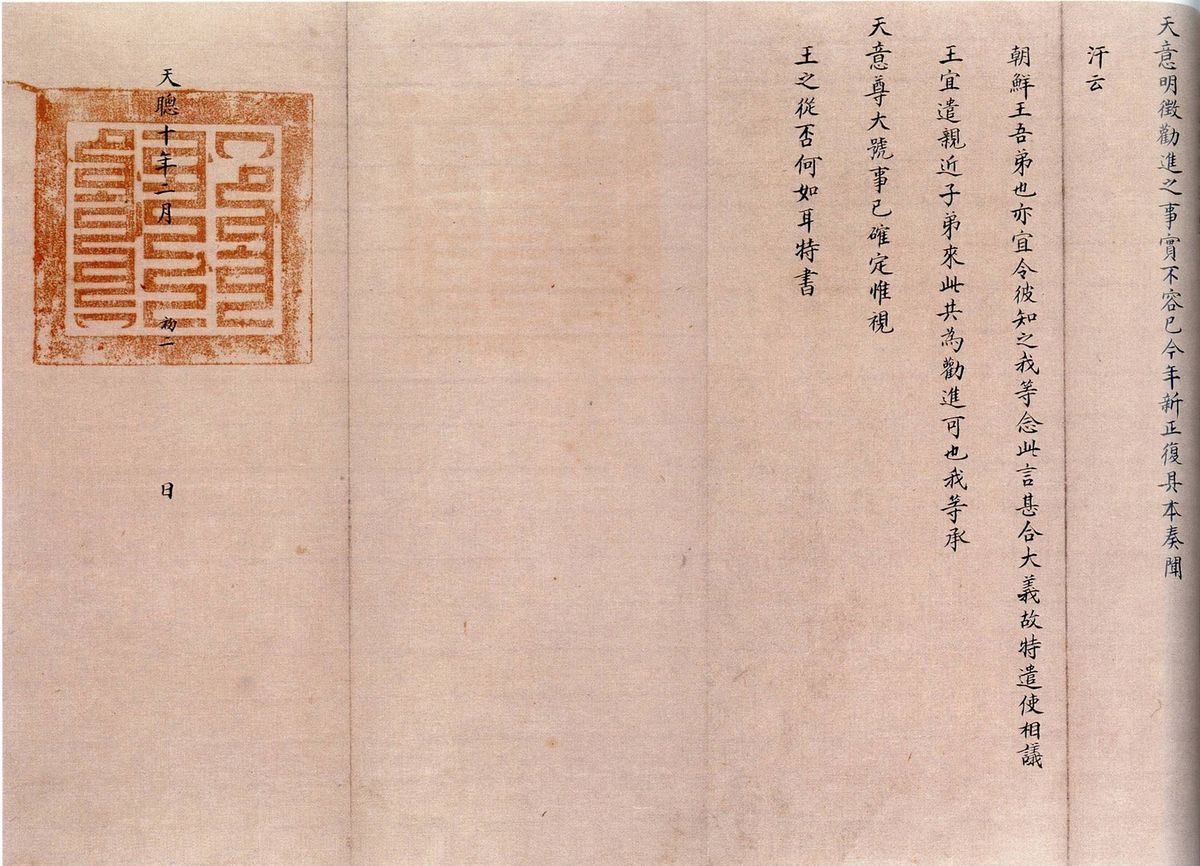 天意明徵勸進之事實不容已今年新正復具本奏聞
汗云
朝鮮王吾弟也亦宜令彼知之我等念此言甚合大義故特遣使相議
王宜遣親近子弟來此共為勸進可也我等承
天意尊大號事已確定惟視
王之從否何如耳特書
天聰十年二月初一日